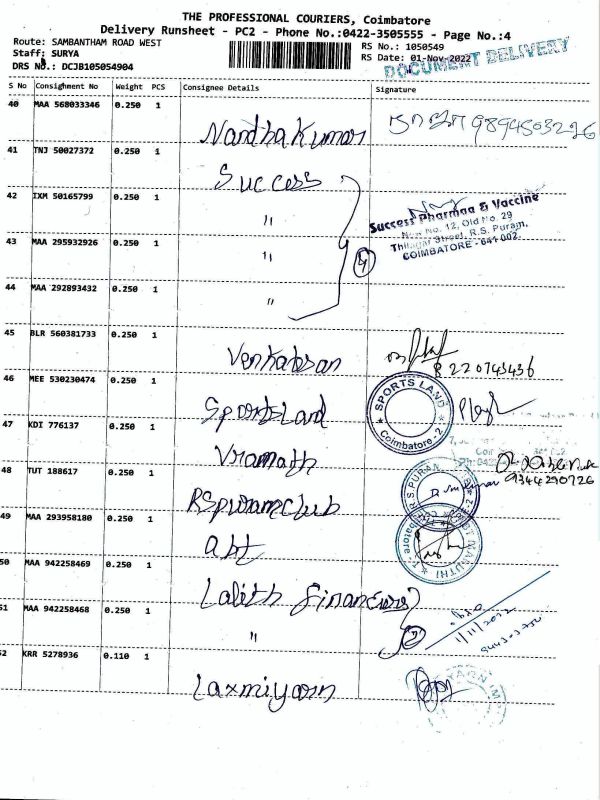 THE PROFESSIONAL COURIERS, Coimbatore
Delivery Runsheet - PC2 - Phone No.:0422-3505555 - Page No.:4
Route: SAMBANTHAM ROAD WEST
RS No.: 1050549
Staff: SURYA
RS Date: 01-Nov-2022
DOCUMENT DELIVERY
DRS No.: DCJB105054904
S No Consignment No Weight PCS Consignee Details Signature
40 MAA 568033346 0.250 1
Nandhakumar 9894503226
41 TNJ 50027372 0.250 1
Success
42 IXM 50165799 0.250 1
"
Success Pharmaa & Vaccine
New No. 12, Old No. 29
Thilagar Street, R.S. Puram,
COIMBATORE - 641 002.
43 MAA 295932926 0.250 1
" 4
44 MAA 292893432 0.250 1
"
45 BLR 560381733 0.250 1
Venkatesan
8220743436
46 MEE 530230474 0.250 1
Sportsland
SPORTS LAND
Coimbatore - 2
47 KDI 776137 0.250 1
Vramath
48 TUT 188617 0.250 1
9344290726
RSpuramclub
R.S.PURAM
49 MAA 293958180 0.250 1
abt
50 MAA 942258469 0.250 1
Lalith Financiers
51 MAA 942258468 0.250 1
" 2
1/11/2022
52 KRR 5278936 0.110 1
Laxmiyarn